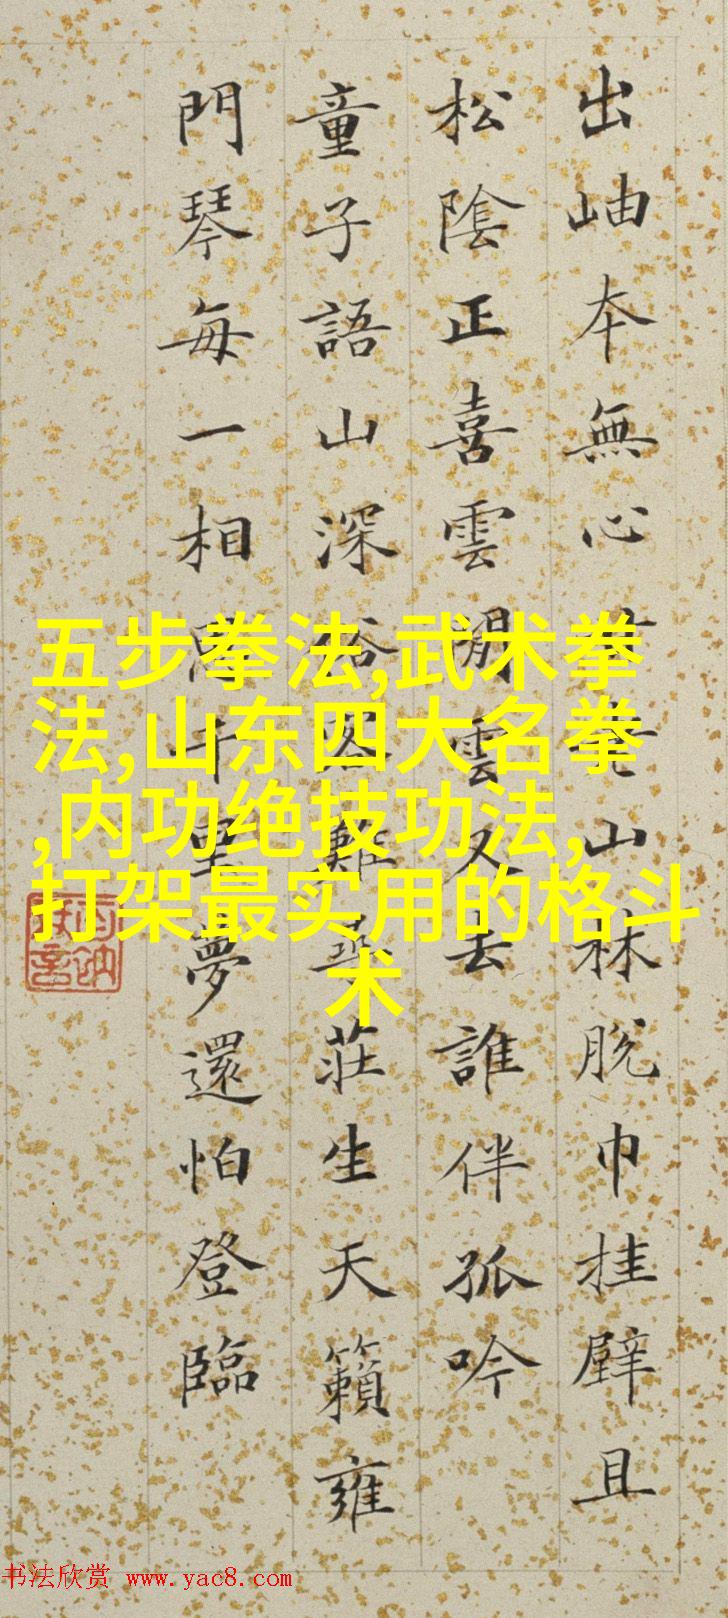 出岫本無心山林脫巾挂壁且
松陰正喜雲閒雲又去誰伴孤吟
童子語山深俗客難尋莊生天籟雍
門琴每一相千里夢還怕登臨
五步拳法,武术拳
法,山东四大名拳
,内功绝技功法,
打架最实用的格斗
术
书法欣赏 www.yac8.com